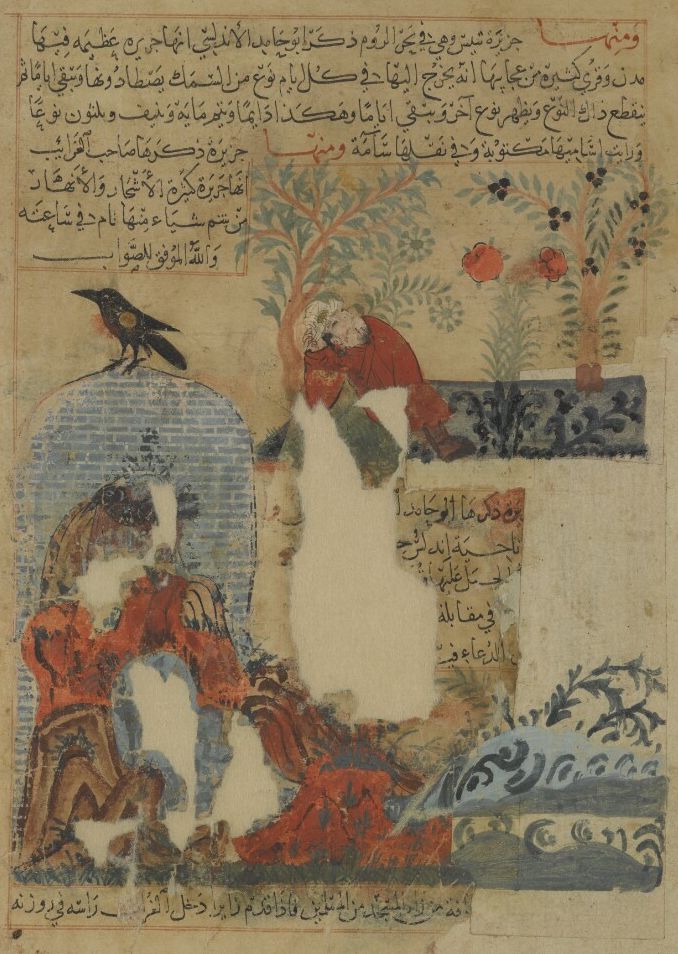 ومنها جزيرة تنيس وهي في بحر الروم ذكر ابو حامد الأندلسي انها جزيرة عظيمة فيها
مدن وقرى كثيرة من عجايبها انه يخرج اليها في كل ايام نوع من السمك يصطادونها ويبقى اياما ثم
ينقطع ذاك النوع ويظهر نوع آخر ويبقى اياما وهكذا دايما ويتم مايه ونيف وثلثون نوعا
ورايت اساميها مكتوبة وفي نقلها سآمة ومنها
جزيرة ذكرها صاحب الغرائب
انها جزيرة كثيرة الأشجار والأنهار
من شم شياء منها نام في ساعته
والله الموفق للصواب
ذكرها ابو حامد
ناحية اندلس
الجبل عليها
في مقابلة
الدعاء فيه
من زار المسجد من المسلمين فاذا قدم زايرا دخل الغراب راسه في روزنه